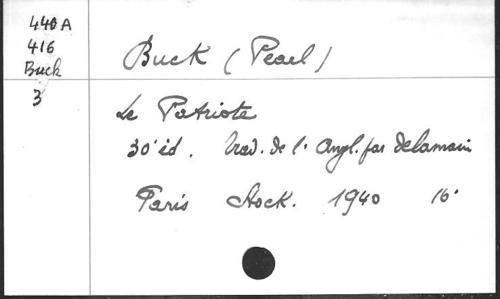 440 A
416
Buck
3
Buck (Pearl)
Le Patriote
30' éd. Trad. de l'Angl. par Delamain
Paris Stock. 1940 16°